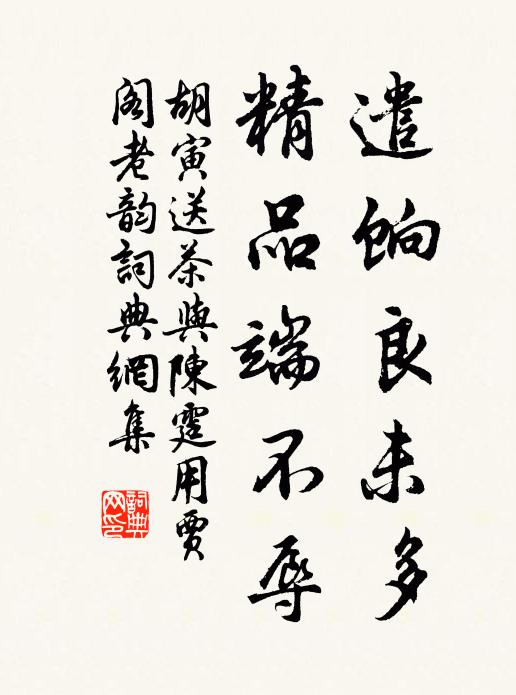 遣餉良未多
精品端不辱
胡寅送茶與陳霆用賈
閣老韵詞典網集
詞典网印